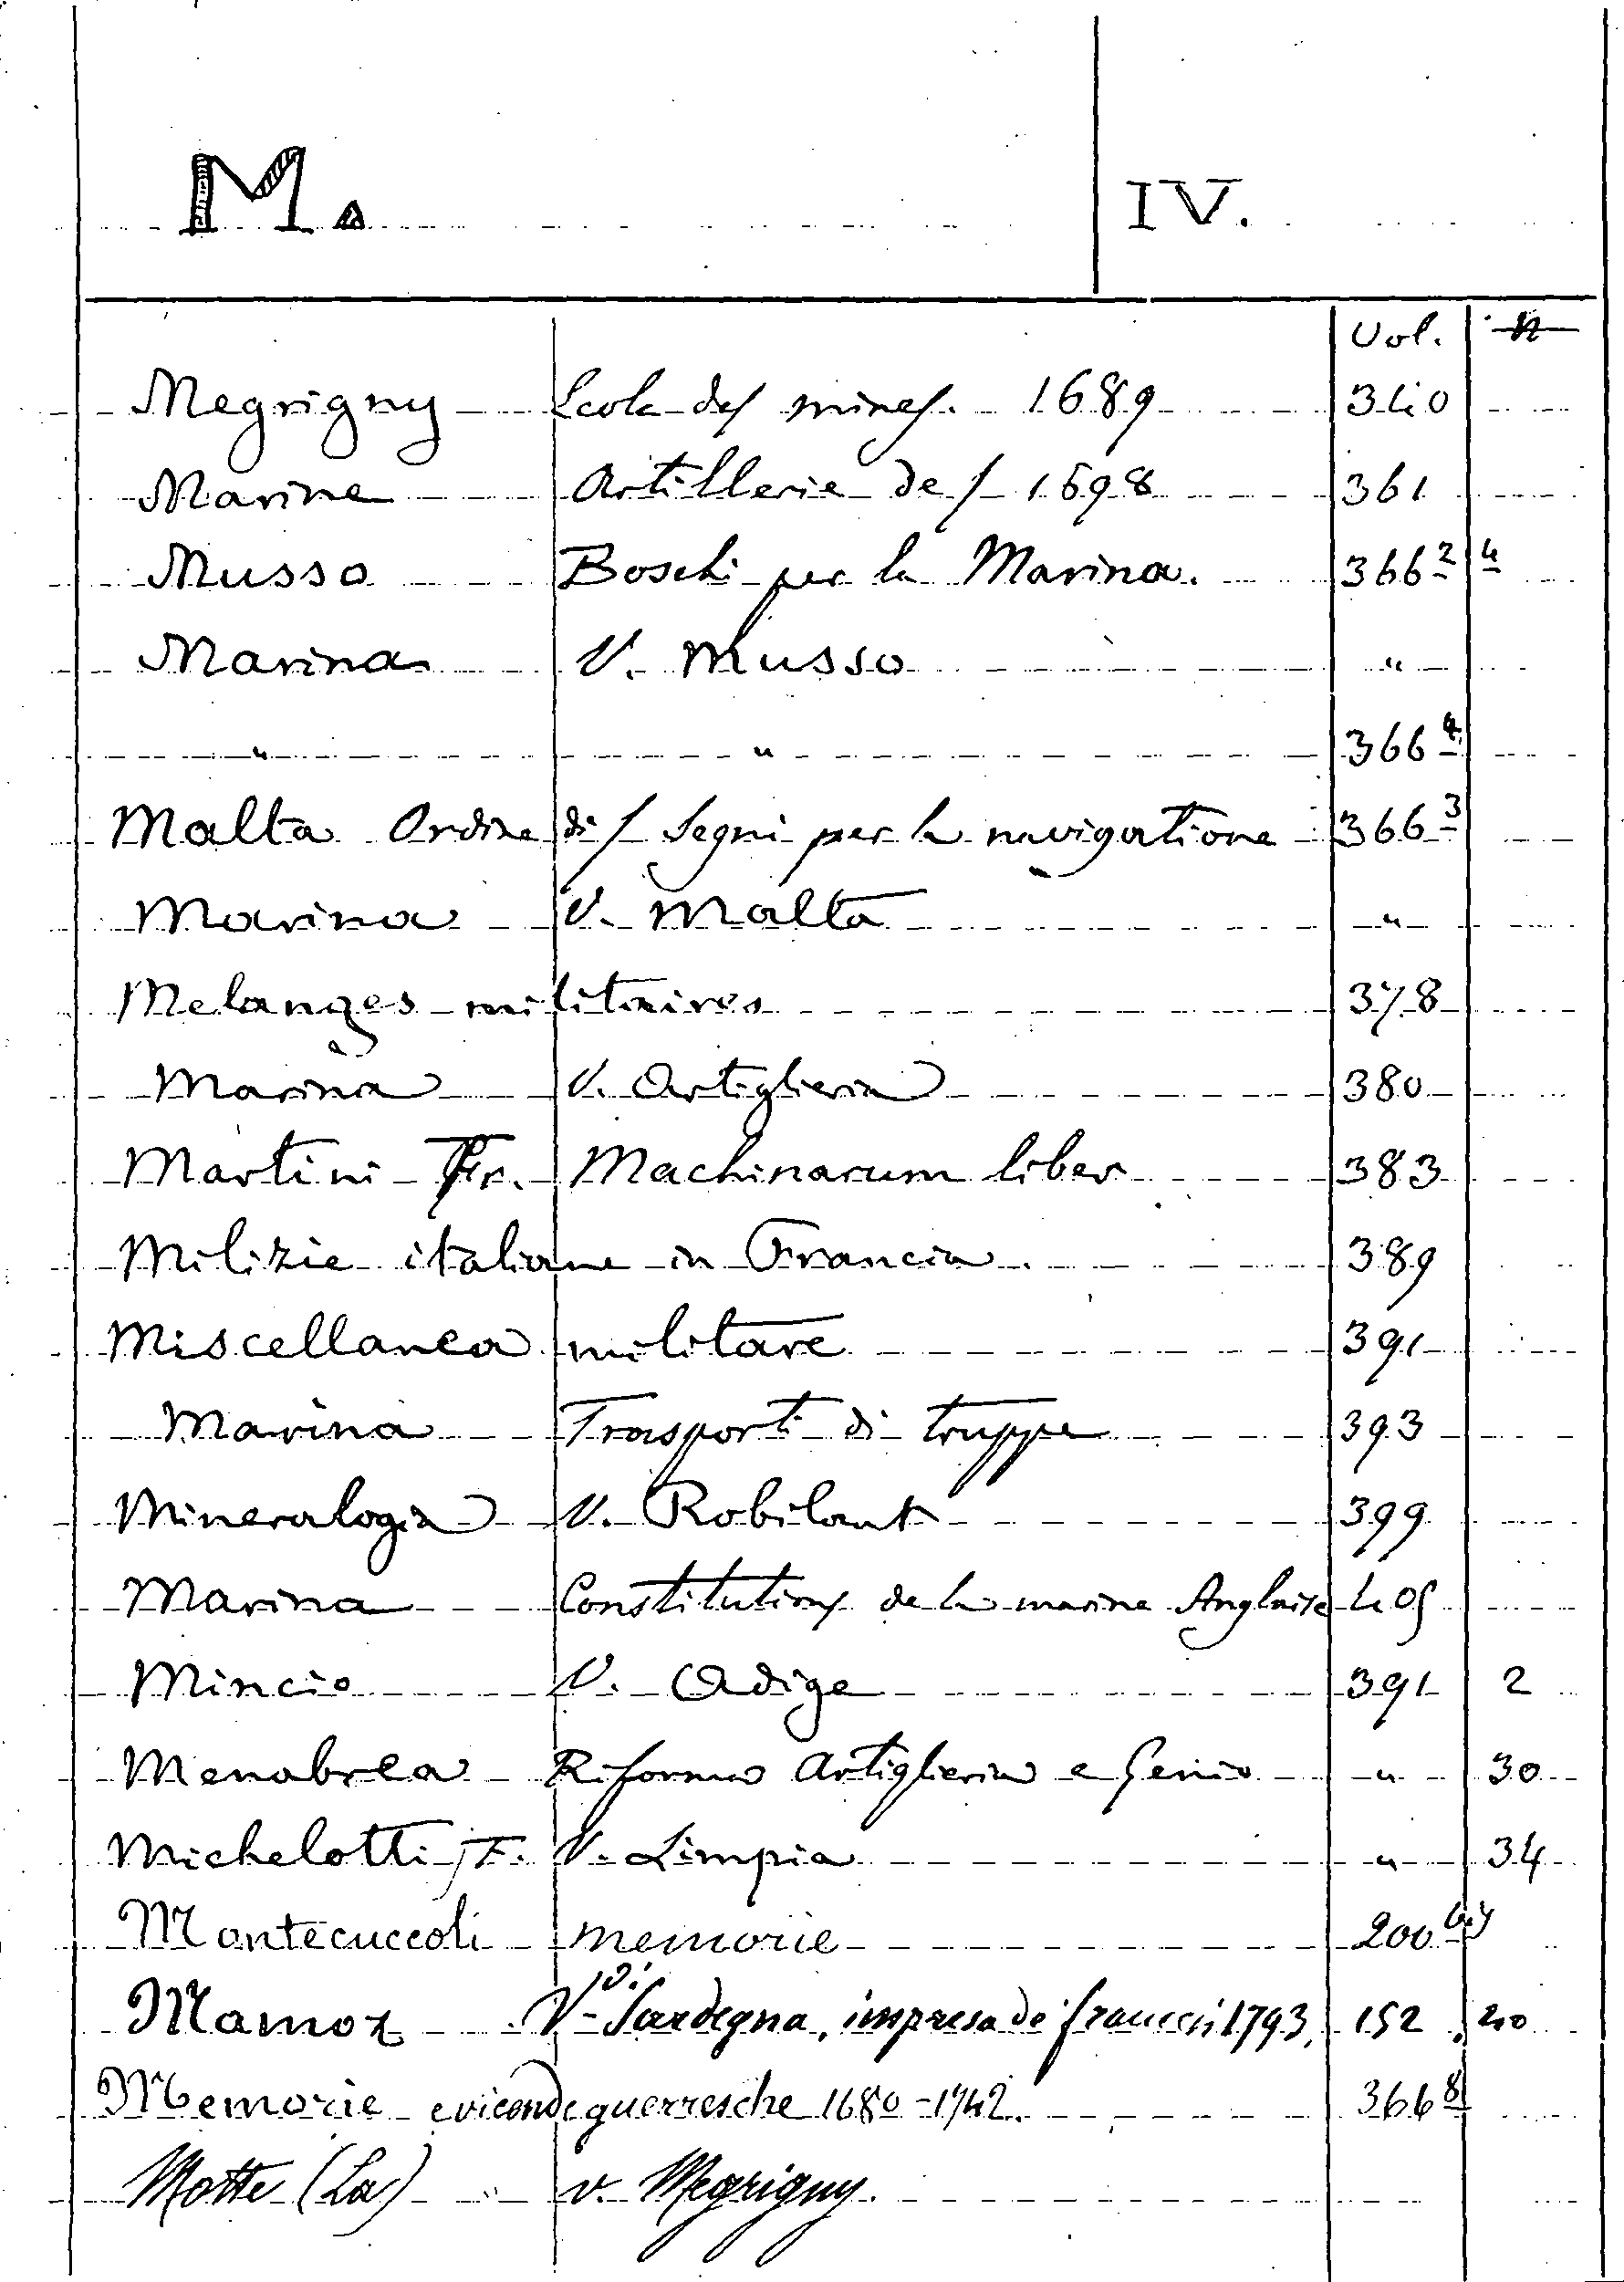 M. IV.
Vol. n
Megrigny Ecole des mines. 1689 340
Marine Artillerie de / 1698 361
Musso Boschi per la Marina. 366² 4
Marina V. Musso "
" " 366⁴
Malta Ordine di / Segni per la navigatione 366³
Marina V. Malta "
Melanges militaires 378
Marina V. Artiglieria 380
Martini Fr. Machinarum liber 383
Milizie italiane in Francia. 389
Miscellanea militare 391
Marina Trasporti di truppe 393
Mineralogia V. Robilant 399
Marina Constitutions de la marine Anglaise 405
Mincio V. Adige 391 2
Menabrea Riforma Artiglieria e Genio " 30
Michelotti F. V. Limpia " 34
Montecuccoli memorie 200 bis
Mamoz Vdi Sardegna, impresa dei francesi 1793. 152. 40
Memorie e vicende guerresche 1680-1742. 366⁸
Motte (La) v. Megrigny.